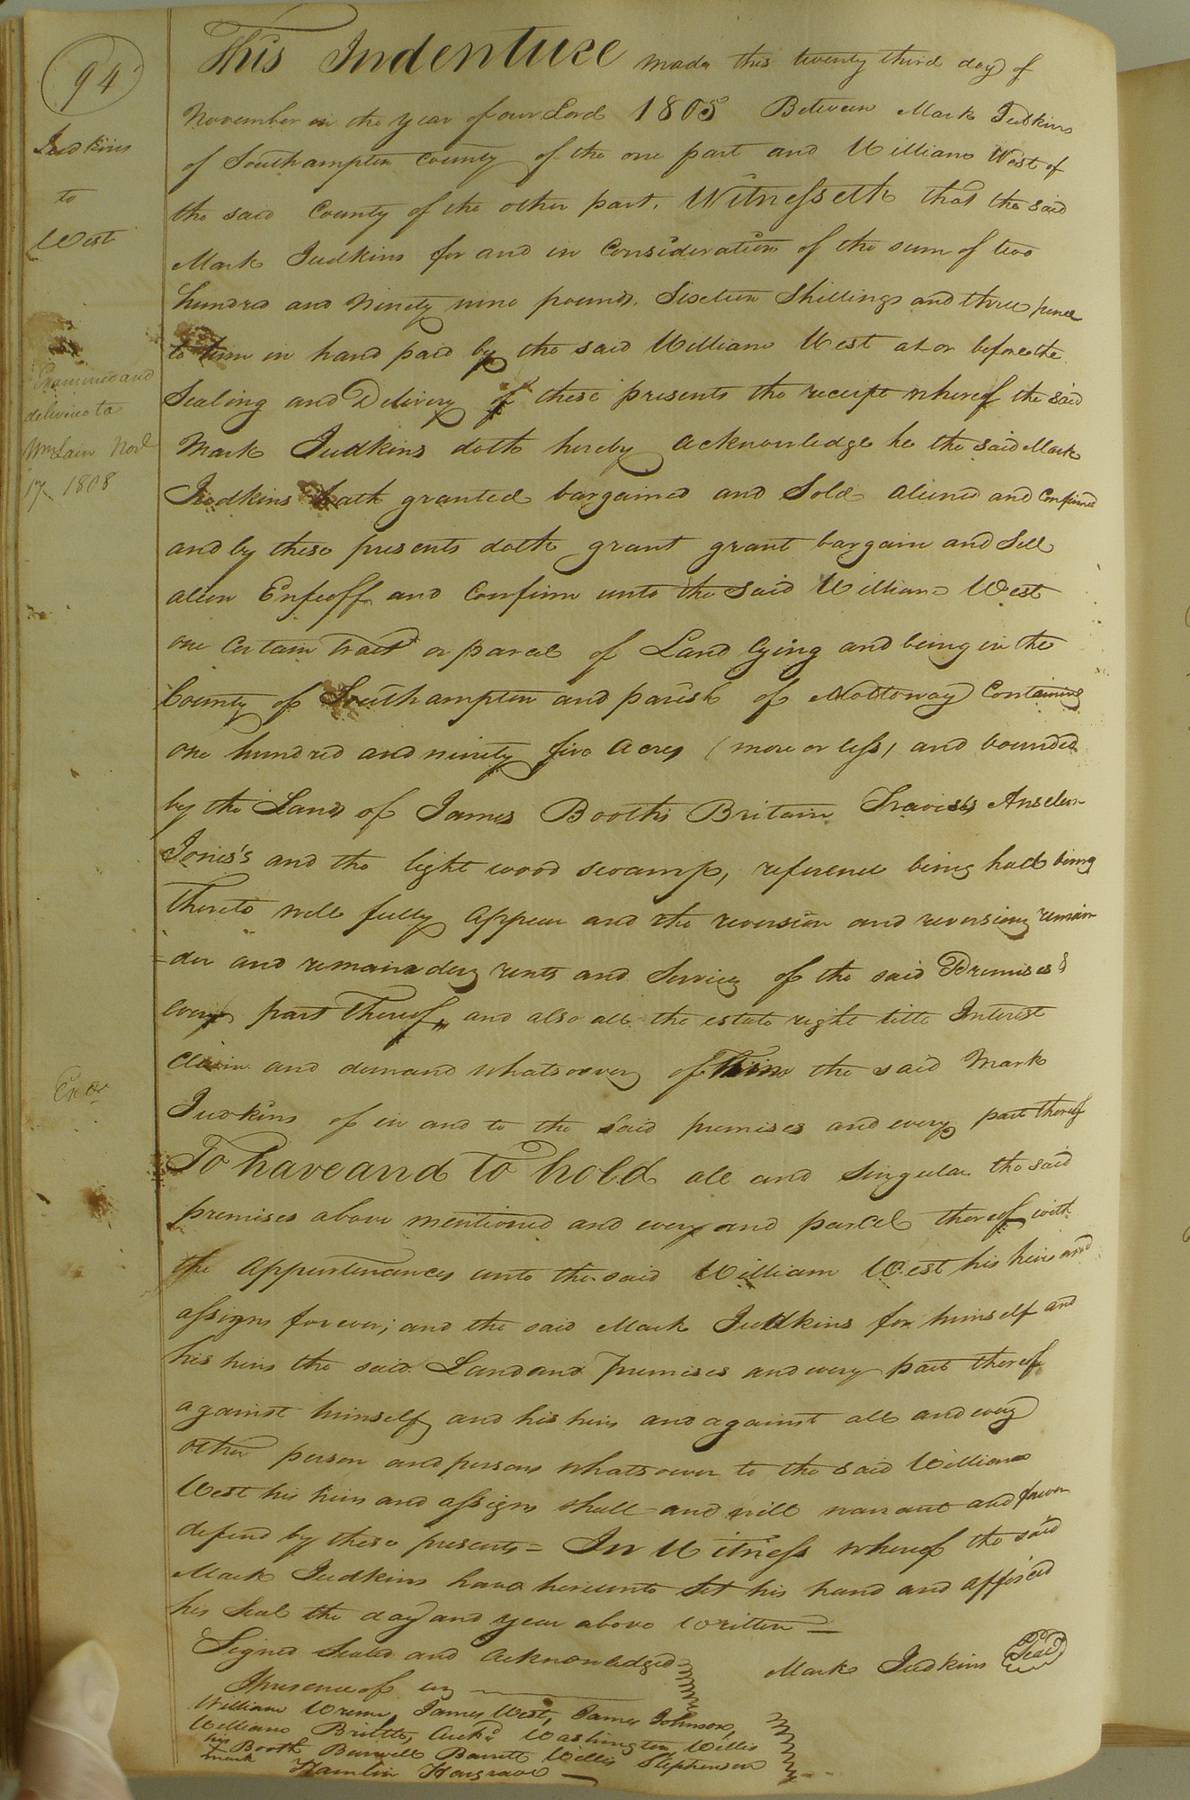 94
Judkins
to
West
Examined and
delivered to
Wm Lain Novr
17 1808
Exor
This Indenture made this twenty third day of
November in the year of our Lord 1805 Between Mark Judkins
of Southampton County of the one part and William West of
the said County of the other part. Witnesseth that the said
Mark Judkins for and in Consideration of the sum of two
hundred and Ninety nine pounds. Sixteen Shillings and three pence
to him in hand paid by the said William West at or before the
Sealing and Delivery of these presents the receipt whereof the said
Mark Judkins doth hereby acknowledge he the said Mark
Judkins hath granted bargained and Sold aliened and Confirmed
and by these presents doth grant grant bargain and Sell
alien Enfeoff and Confirm unto the Said William West
one Certain tract or parcel of Land lying and being in the
County of Southampton and parish of Nottoway Containing
one hundred and ninety five acres (more or less) and bounded
by the Lands of James Booth's Britain Travis's Anselm
Jones's and the light wood swamp, reference being had being
thereto will fully appear and the reversion and reversions remain
=der and remainders rents and Services of the said Premises &
every part thereof, and also all the estate right title Interest
Claim and demand whatsoever of him the said Mark
Judkins of in and to the said premises and every part thereof
To have and to hold all and Singular the said
premises above mentioned and every and parcel thereof with
the appurtenances unto the said William West his heirs and
assigns forever; and the said Mark Judkins for himself and
his heirs the said Land and Premises and every part thereof
against himself and his heirs and against all and every
other person and persons whatsoever to the said William
West his heirs and assigns shall and will warrant and forever
defend by these presents = In Witness whereof the said
Mark Judkins have hereunto Set his hand and affixed
his Seal the day and year above written =
Signed Sealed and Acknowledged
Presence of us
Mark Judkins Seal
William Wrenn, James West, James Johnson,
William Brittle, Auckd Washington, Willis
his Booth Burwell Barrett Willis Stephenson
mark Hamlin Hargrave